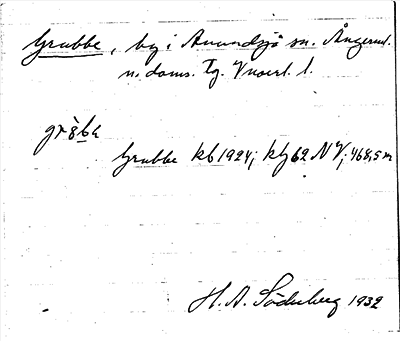 Grubbe, by i Anundsjö sn. Ångerml.
n. doms. Tg.
grùb̲e
Grubbe kb 1924; ktg 62 NV; 468,5 m
H. A. Söderberg 1932